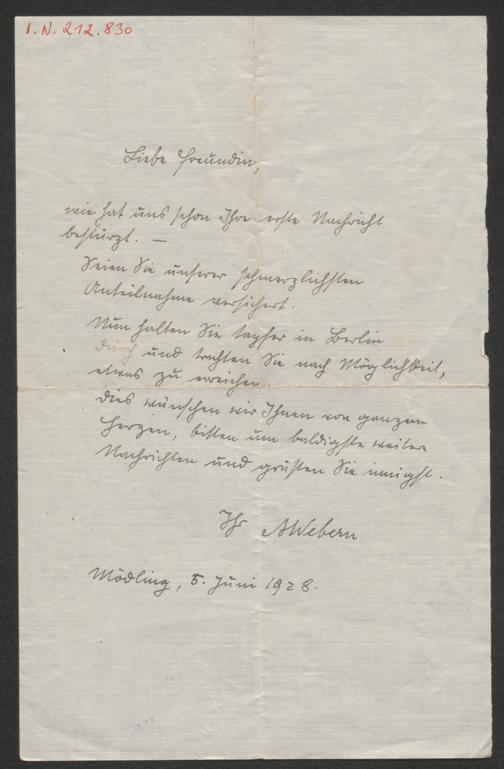 I.N. 212.830
Liebe Freundin,
wie hat uns schon Ihre erste Nachricht
bestürzt. —
Seien Sie unserer schmerzlichsten
Anteilnahme versichert.
Nun halten Sie tapfer in Berlin
durch und trachten Sie nach Möglichkeit,
etwas zu erreichen.
Dies wünschen wir Ihnen von ganzem
Herzen, bitten um baldigste weitere
Nachrichten und grüßen Sie innigst.
Ihr AWebern
Mödling, 5. Juni 1928.